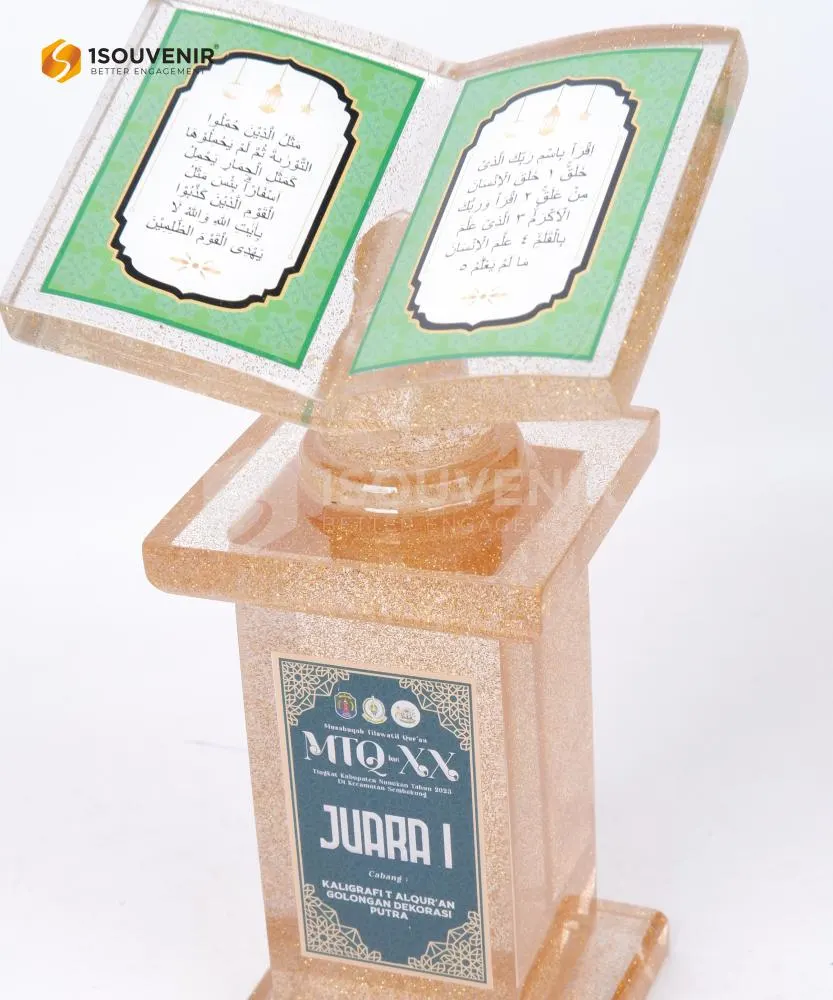 1SOUVENIR
BETTER ENGAGEMENT
مَثَلُ الَّذِيْنَ حُمِّلُوا
التَّوْرٰىةَ ثُمَّ لَمْ يَحْمِلُوْهَا
كَمَثَلِ الْحِمَارِ يَحْمِلُ
اَسْفَارًاۗ بِئْسَ مَثَلُ
الْقَوْمِ الَّذِيْنَ كَذَّبُوْا
بِاٰيٰتِ اللّٰهِ وَاللّٰهُ لَا
يَهْدِى الْقَوْمَ الظّٰلِمِيْنَ
اِقْرَأْ بِاسْمِ رَبِّكَ الَّذِىْ
خَلَقَ ١ خَلَقَ الْاِنْسَانَ
مِنْ عَلَقٍ ٢ اِقْرَأْ وَرَبُّكَ
الْاَكْرَمُ ٣ الَّذِىْ عَلَّمَ
بِالْقَلَمِ ٤ عَلَّمَ الْاِنْسَانَ
مَا لَمْ يَعْلَمْ ٥
1SOUVENIR
BETTER ENGAGEMENT
Musabaqah Tilawatil Qur'an
MTQ ke: XX
Tingkat Kabupaten Nunukan Tahun 2023
Di Kecamatan Sembakung
JUARA I
Cabang :
KALIGRAFI T ALQUR'AN
GOLONGAN DEKORASI
PUTRA